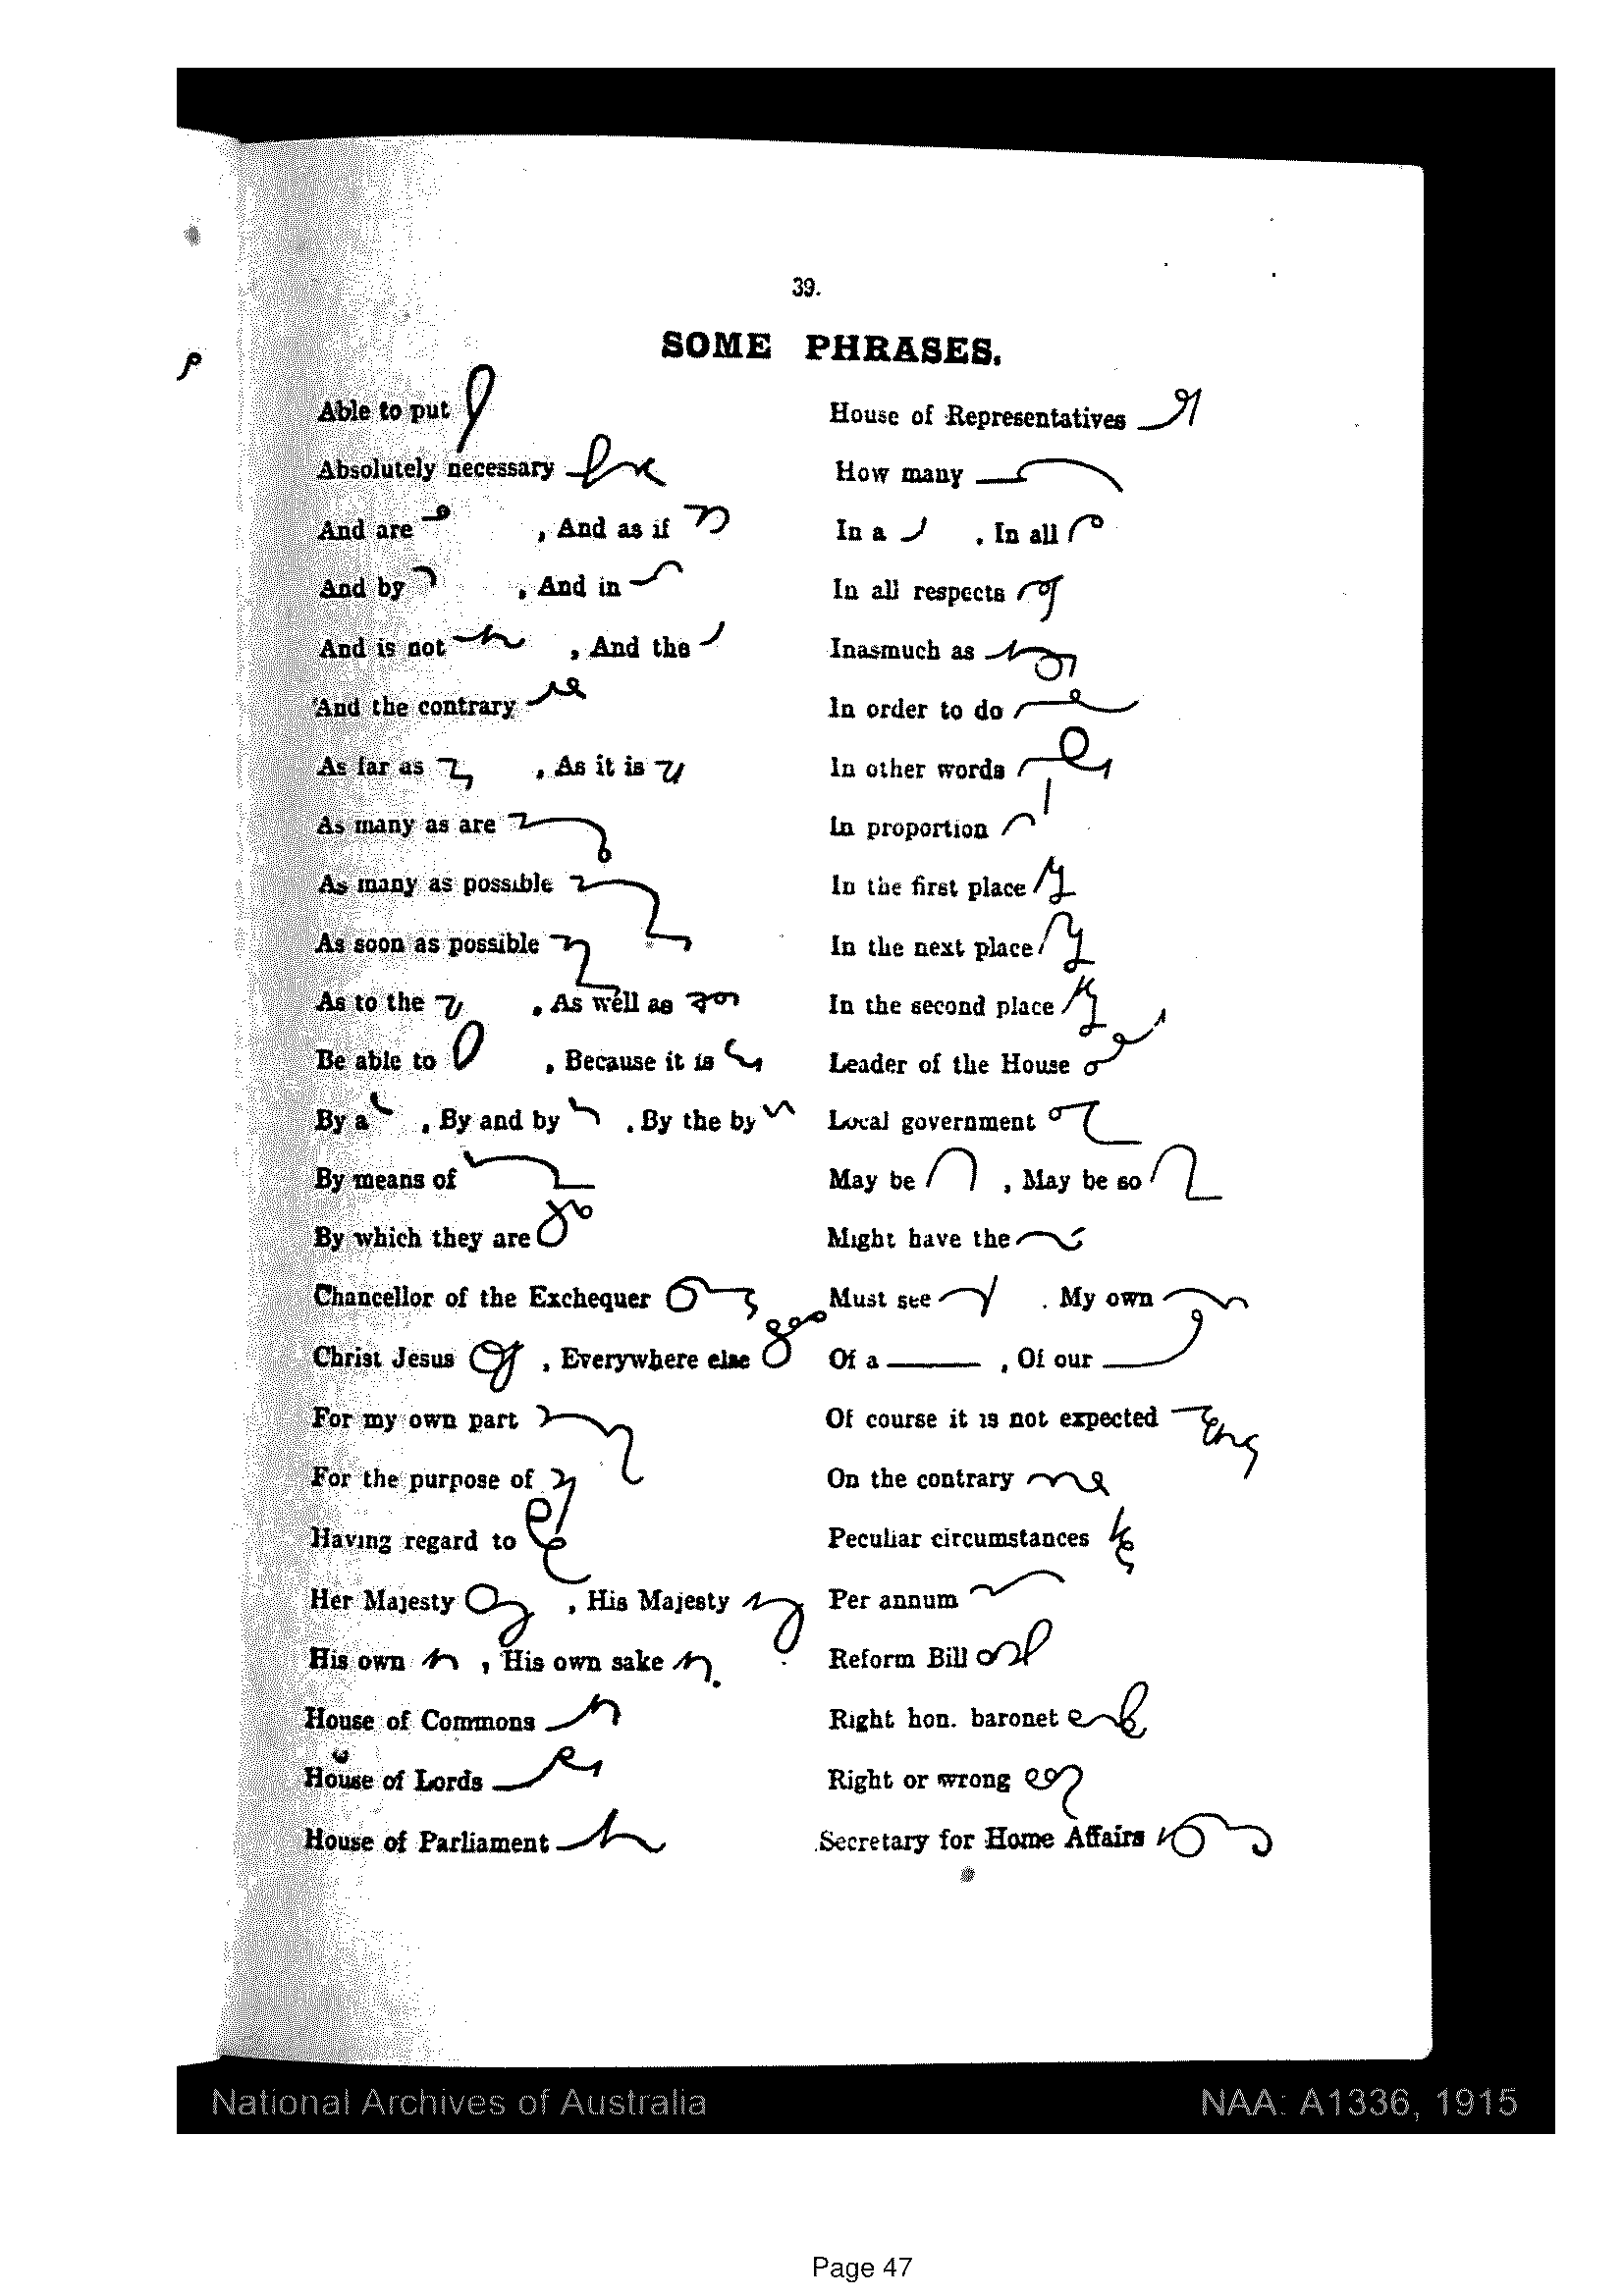 39.
SOME PHRASES.
Able to put
Absolutely necessary
And are , And as if
And by , And in
And is not , And the
And the contrary
As far as , As it is
As many as are
As many as possible
As soon as possible
As to the , As well as
Be able to , Because it is
By a , By and by , By the by
By means of
By which they are
Chancellor of the Exchequer
Christ Jesus , Everywhere else
For my own part
For the purpose of
Having regard to
Her Majesty , His Majesty
His own , His own sake
House of Commons
House of Lords
House of Parliament
House of Representatives
How many
In a , In all
In all respects
Inasmuch as
In order to do
In other words
In proportion
In the first place
In the next place
In the second place
Leader of the House
Local government
May be , May be so
Might have the
Must see . My own
Of a , Of our
Of course it is not expected
On the contrary
Peculiar circumstances
Per annum
Reform Bill
Right hon. baronet
Right or wrong
Secretary for Home Affairs
National Archives of Australia
NAA: A1336, 1915
Page 47